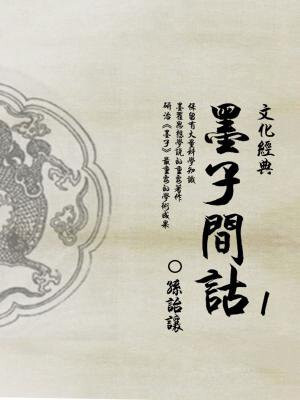 文化經典
墨子間詁
1
保留有大量科學知識
墨翟思想學說的重要著作
研治《墨子》最重要的學術成果
○孫詒讓